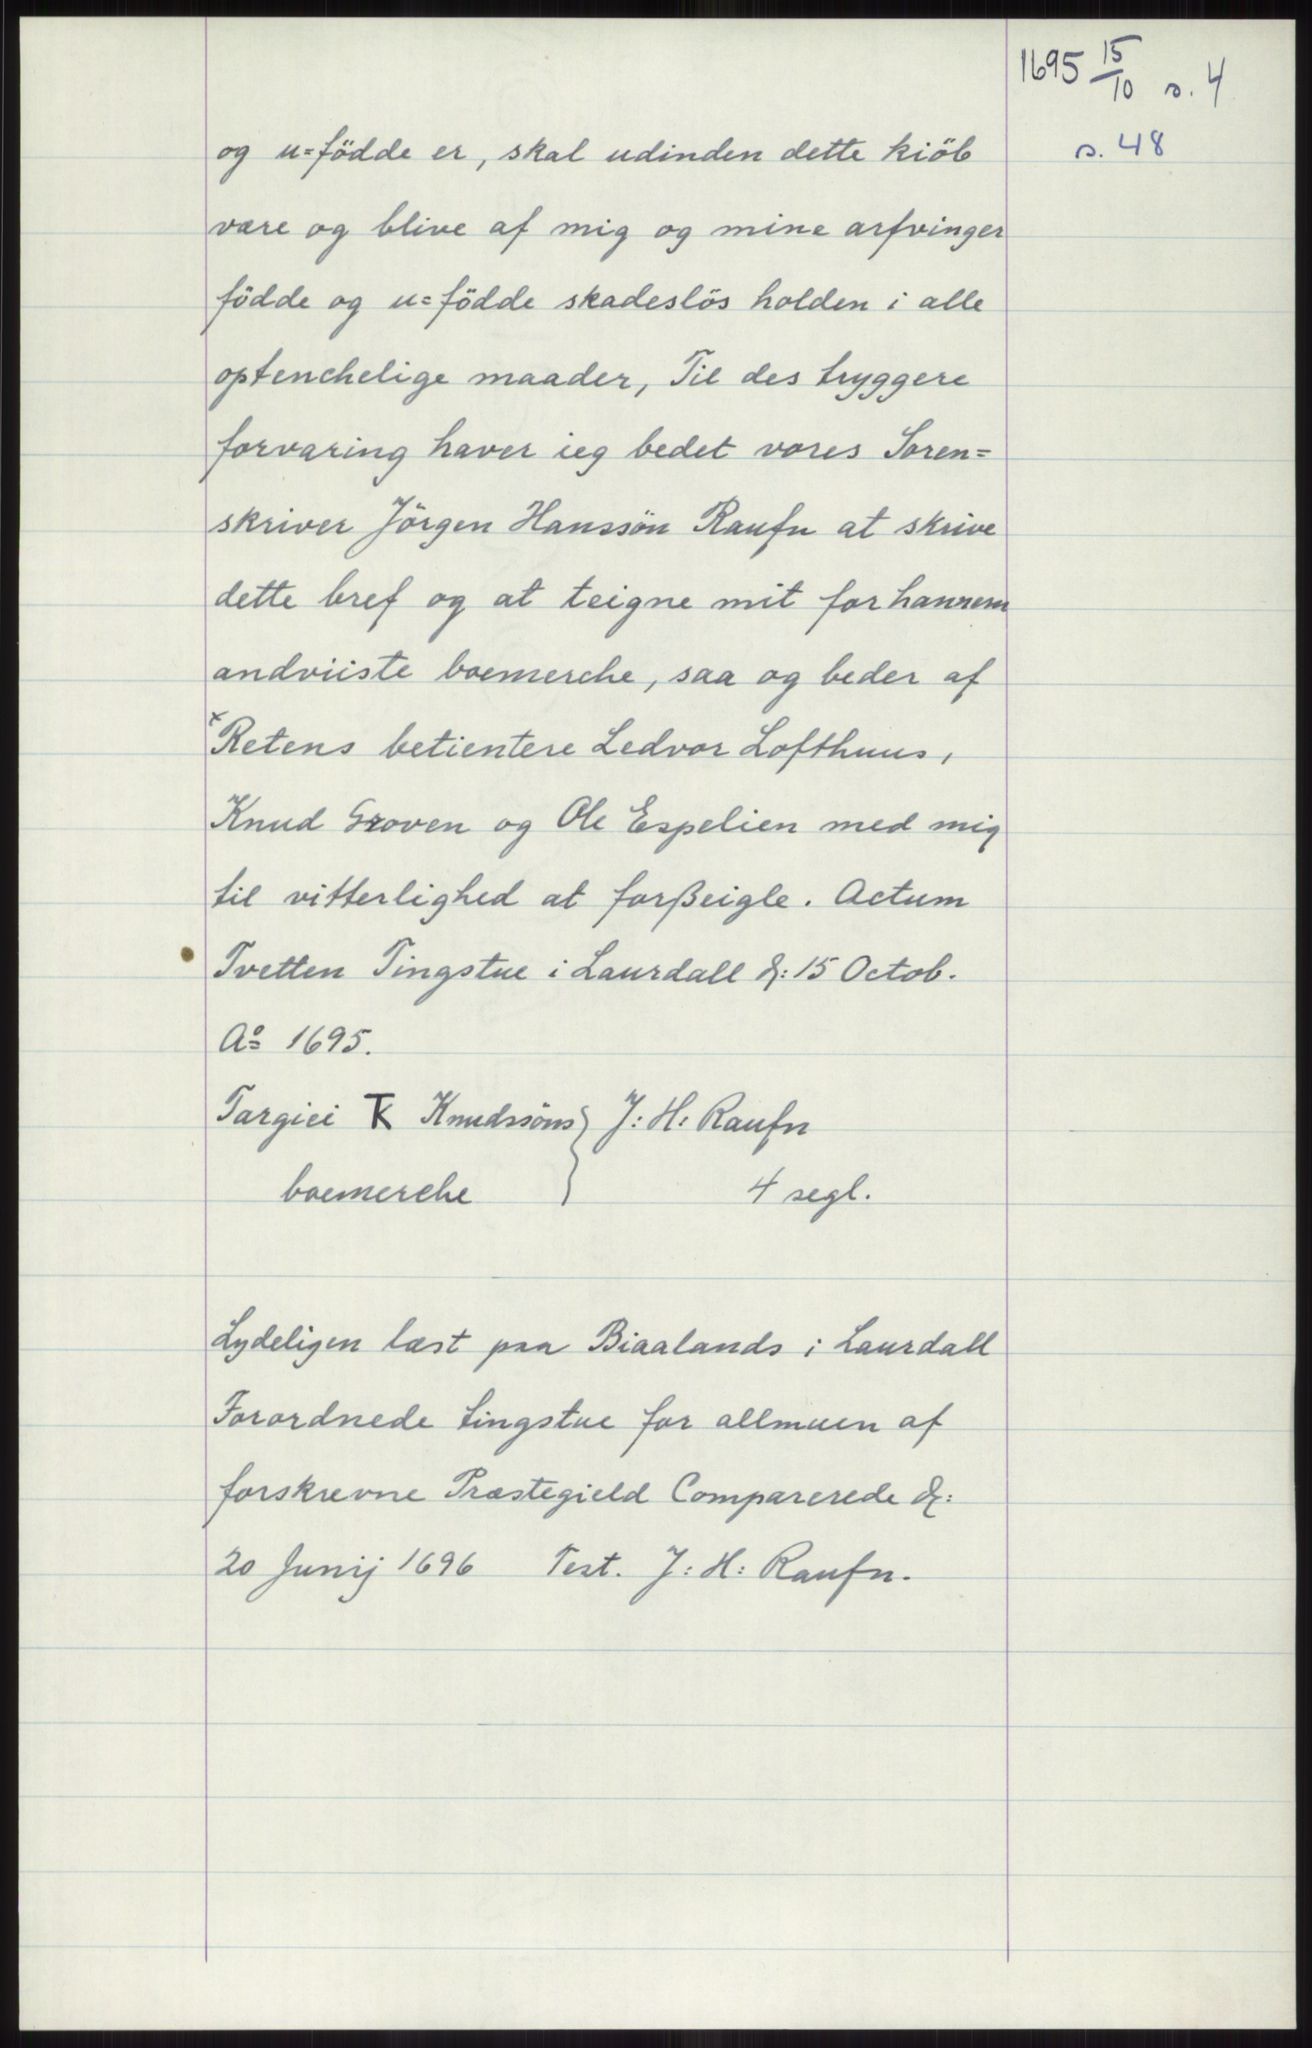 1695 15/10 s. 4
s. 48
og u=födde er, skal udinden dette kiöb
være og blive af mig og mine arfvinger
födde og u=födde skadeslös holden i alle
optenchelige maader, Til des tryggere
forvaring haver ieg bedet vores Soren=
skriver Jörgen Hanssön Raufn at skrive
dette bref og at teigne mit for hannem
andviiste boemerche, saa og beder af
x Retens betientere Ledvor Lofthuus,
Knud Groven og Ole Espelien med mig
til vitterlighed at forßeigle. Actum
Tvetten Tingstue i Laurdall d: 15 Octob.
Aº 1695.
Targiei TK Knudssöns } J: H: Raufn
boemerche 4 segl.
Lydeligen læst paa Biaalands i Laurdall
Forordnede tingstue for allmuen af
forskrevne Præstegield Comparerede d:
20 Junij 1696 Test. J: H: Raufn.